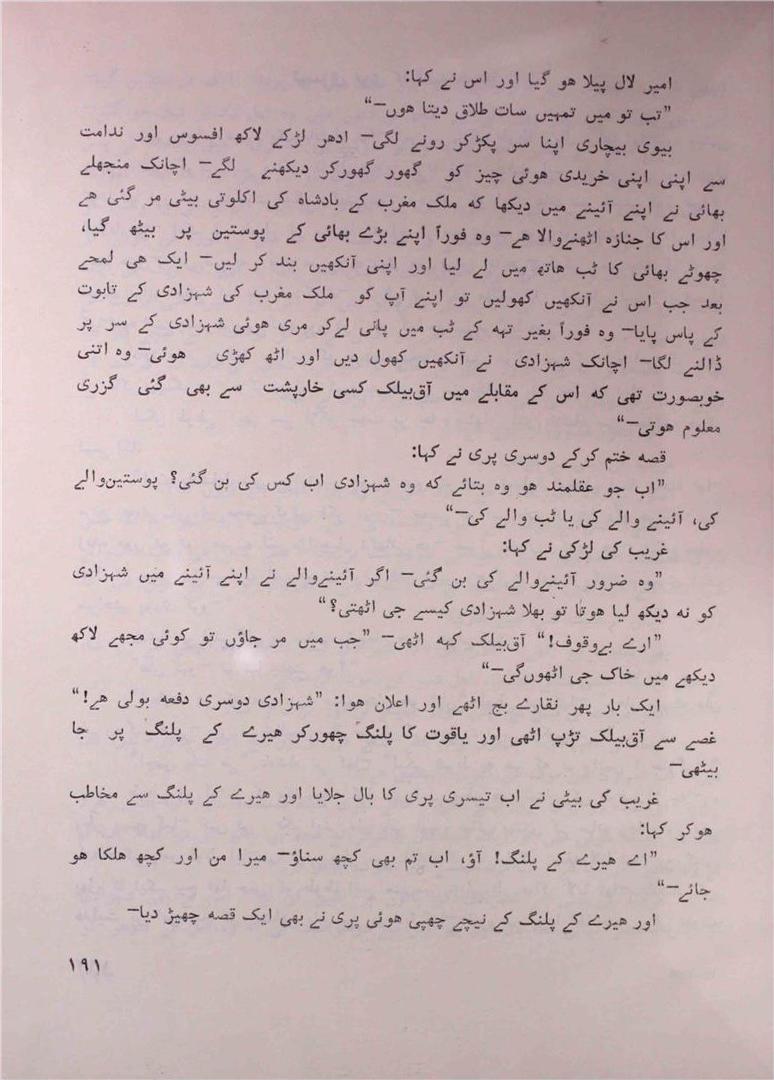 امیر لال پیلا هو گیا اور اس نے کہا:
”تب تو میں تمہیں سات طلاق دیتا هوں—“
بیوی بیچاری اپنا سر پکڑکر رونے لگی— ادھر لڑکے لاکھ افسوس اور ندامت
سے اپنی اپنی خریدی هوئی چیز کو گھور گھورکر دیکھنے لگے— اچانک منجھلے
بھائی نے اپنے آئینے میں دیکھا که ملک مغرب کے بادشاه کی اکلوتی بیٹی مر گئی هے
اور اس کا جنازه اٹھنےوالا هے— وه فوراً اپنے بڑے بھائی کے پوستین پر بیٹھ گیا،
چھوٹے بھائی کا ٹب هاتھ میں لے لیا اور اپنی آنکھیں بند کر لیں— ایک هی لمحے
بعد جب اس نے آنکھیں کھولیں تو اپنے آپ کو ملک مغرب کی شہزادی کے تابوت
کے پاس پایا— وه فوراً بغیر تہه کے ٹب میں پانی لےکر مری هوئی شہزادی کے سر پر
ڈالنے لگا— اچانک شہزادی نے آنکھیں کھول دیں اور اٹھ کھڑی هوئی— وه اتنی
خوبصورت تھی که اس کے مقابلے میں آق‌بیلک کسی خارپشت سے بھی گئی گزری
معلوم هوتی—“
قصه ختم کرکے دوسری پری نے کہا:
”اب جو عقلمند هو وه بتائے که وه شہزادی اب کس کی بن گئی؟ پوستین‌والے
کی، آئینے والے کی یا ٹب والے کی—“
غریب کی لڑکی نے کہا:
”وه ضرور آئینےوالے کی بن گئی— اگر آئینےوالے نے اپنے آئینے میں شہزادی
کو نه دیکھ لیا هوتا تو بھلا شہزادی کیسے جی اٹھتی؟“
”ارے بےوقوف!“ آق‌بیلک کہه اٹھی— ”جب میں مر جاؤں تو کوئی مجھے لاکھ
دیکھے میں خاک جی اٹھوں‌گی—“
ایک بار پھر نقارے بج اٹھے اور اعلان هوا: ”شہزادی دوسری دفعه بولی هے!“
غصے سے آق‌بیلک تڑپ اٹھی اور یاقوت کا پلنگ چھورکر هیرے کے پلنگ پر جا
بیٹھی—
غریب کی بیٹی نے اب تیسری پری کا بال جلایا اور هیرے کے پلنگ سے مخاطب
هوکر کہا:
”اے هیرے کے پلنگ! آؤ، اب تم بھی کچھ سناؤ— میرا من اور کچھ هلکا هو
جائے—“
اور هیرے کے پلنگ کے نیچے چھپی هوئی پری نے بھی ایک قصه چھیڑ دیا—
١٩١